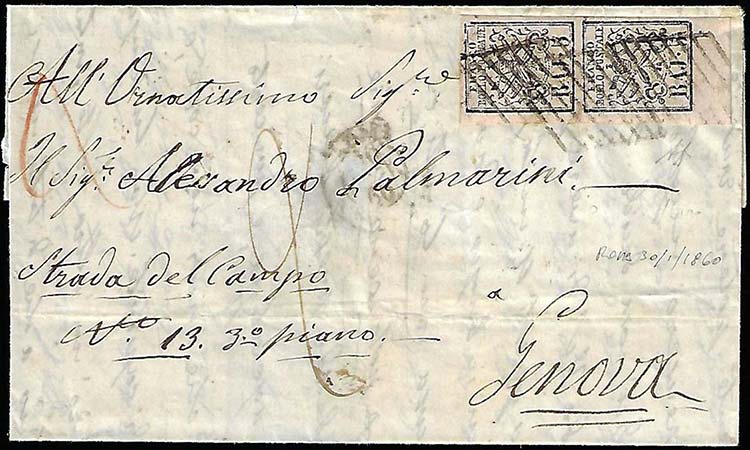 FRANCO
BOLLO POSTALE
BAJ. 8
FRANCO
BOLLO POSTALE
BAJ. 8
All' Ornatissimo Sigre
Il Sigr. Alesandro Palmarini.
Roma 30/1/1860
Strada del Campo
a
No. 13. 3o. piano.
Genova